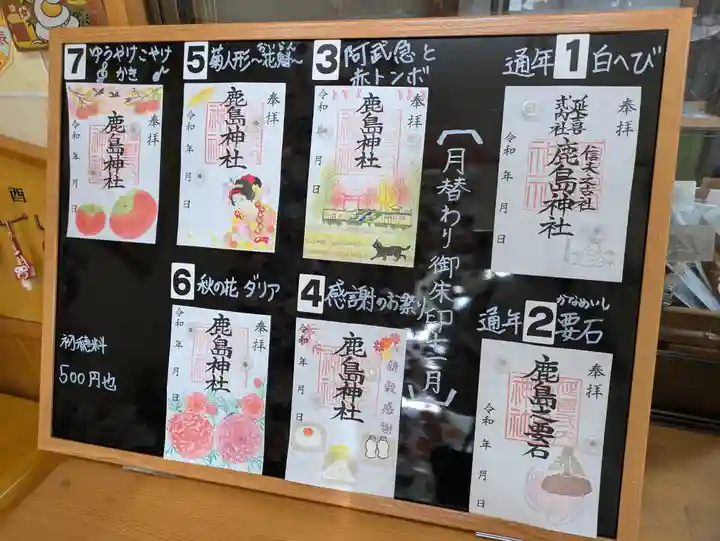 通年 1 白へび
奉拝
延喜式内社
信夫六社
鹿島神社
令和 年 月 日
通年 2 要石
かなめいし
奉拝
鹿島之要石
令和 年 月 日
〔月替わり御朱印十一月〕
3 阿武急と
赤トンボ
奉拝
鹿島神社
令和 年 月 日
4 感謝のお祭り
奉拝
鹿島神社
新穀感謝
令和 年 月 日
5 菊人形
〜花魁〜
おいらん
奉拝
鹿島神社
令和 年 月 日
6 秋の花 ダリア
奉拝
鹿島神社
令和 年 月 日
7 ゆうやけこやけ
かき
奉拝
鹿島神社
令和 年 月 日
初穂料
500円也
酉